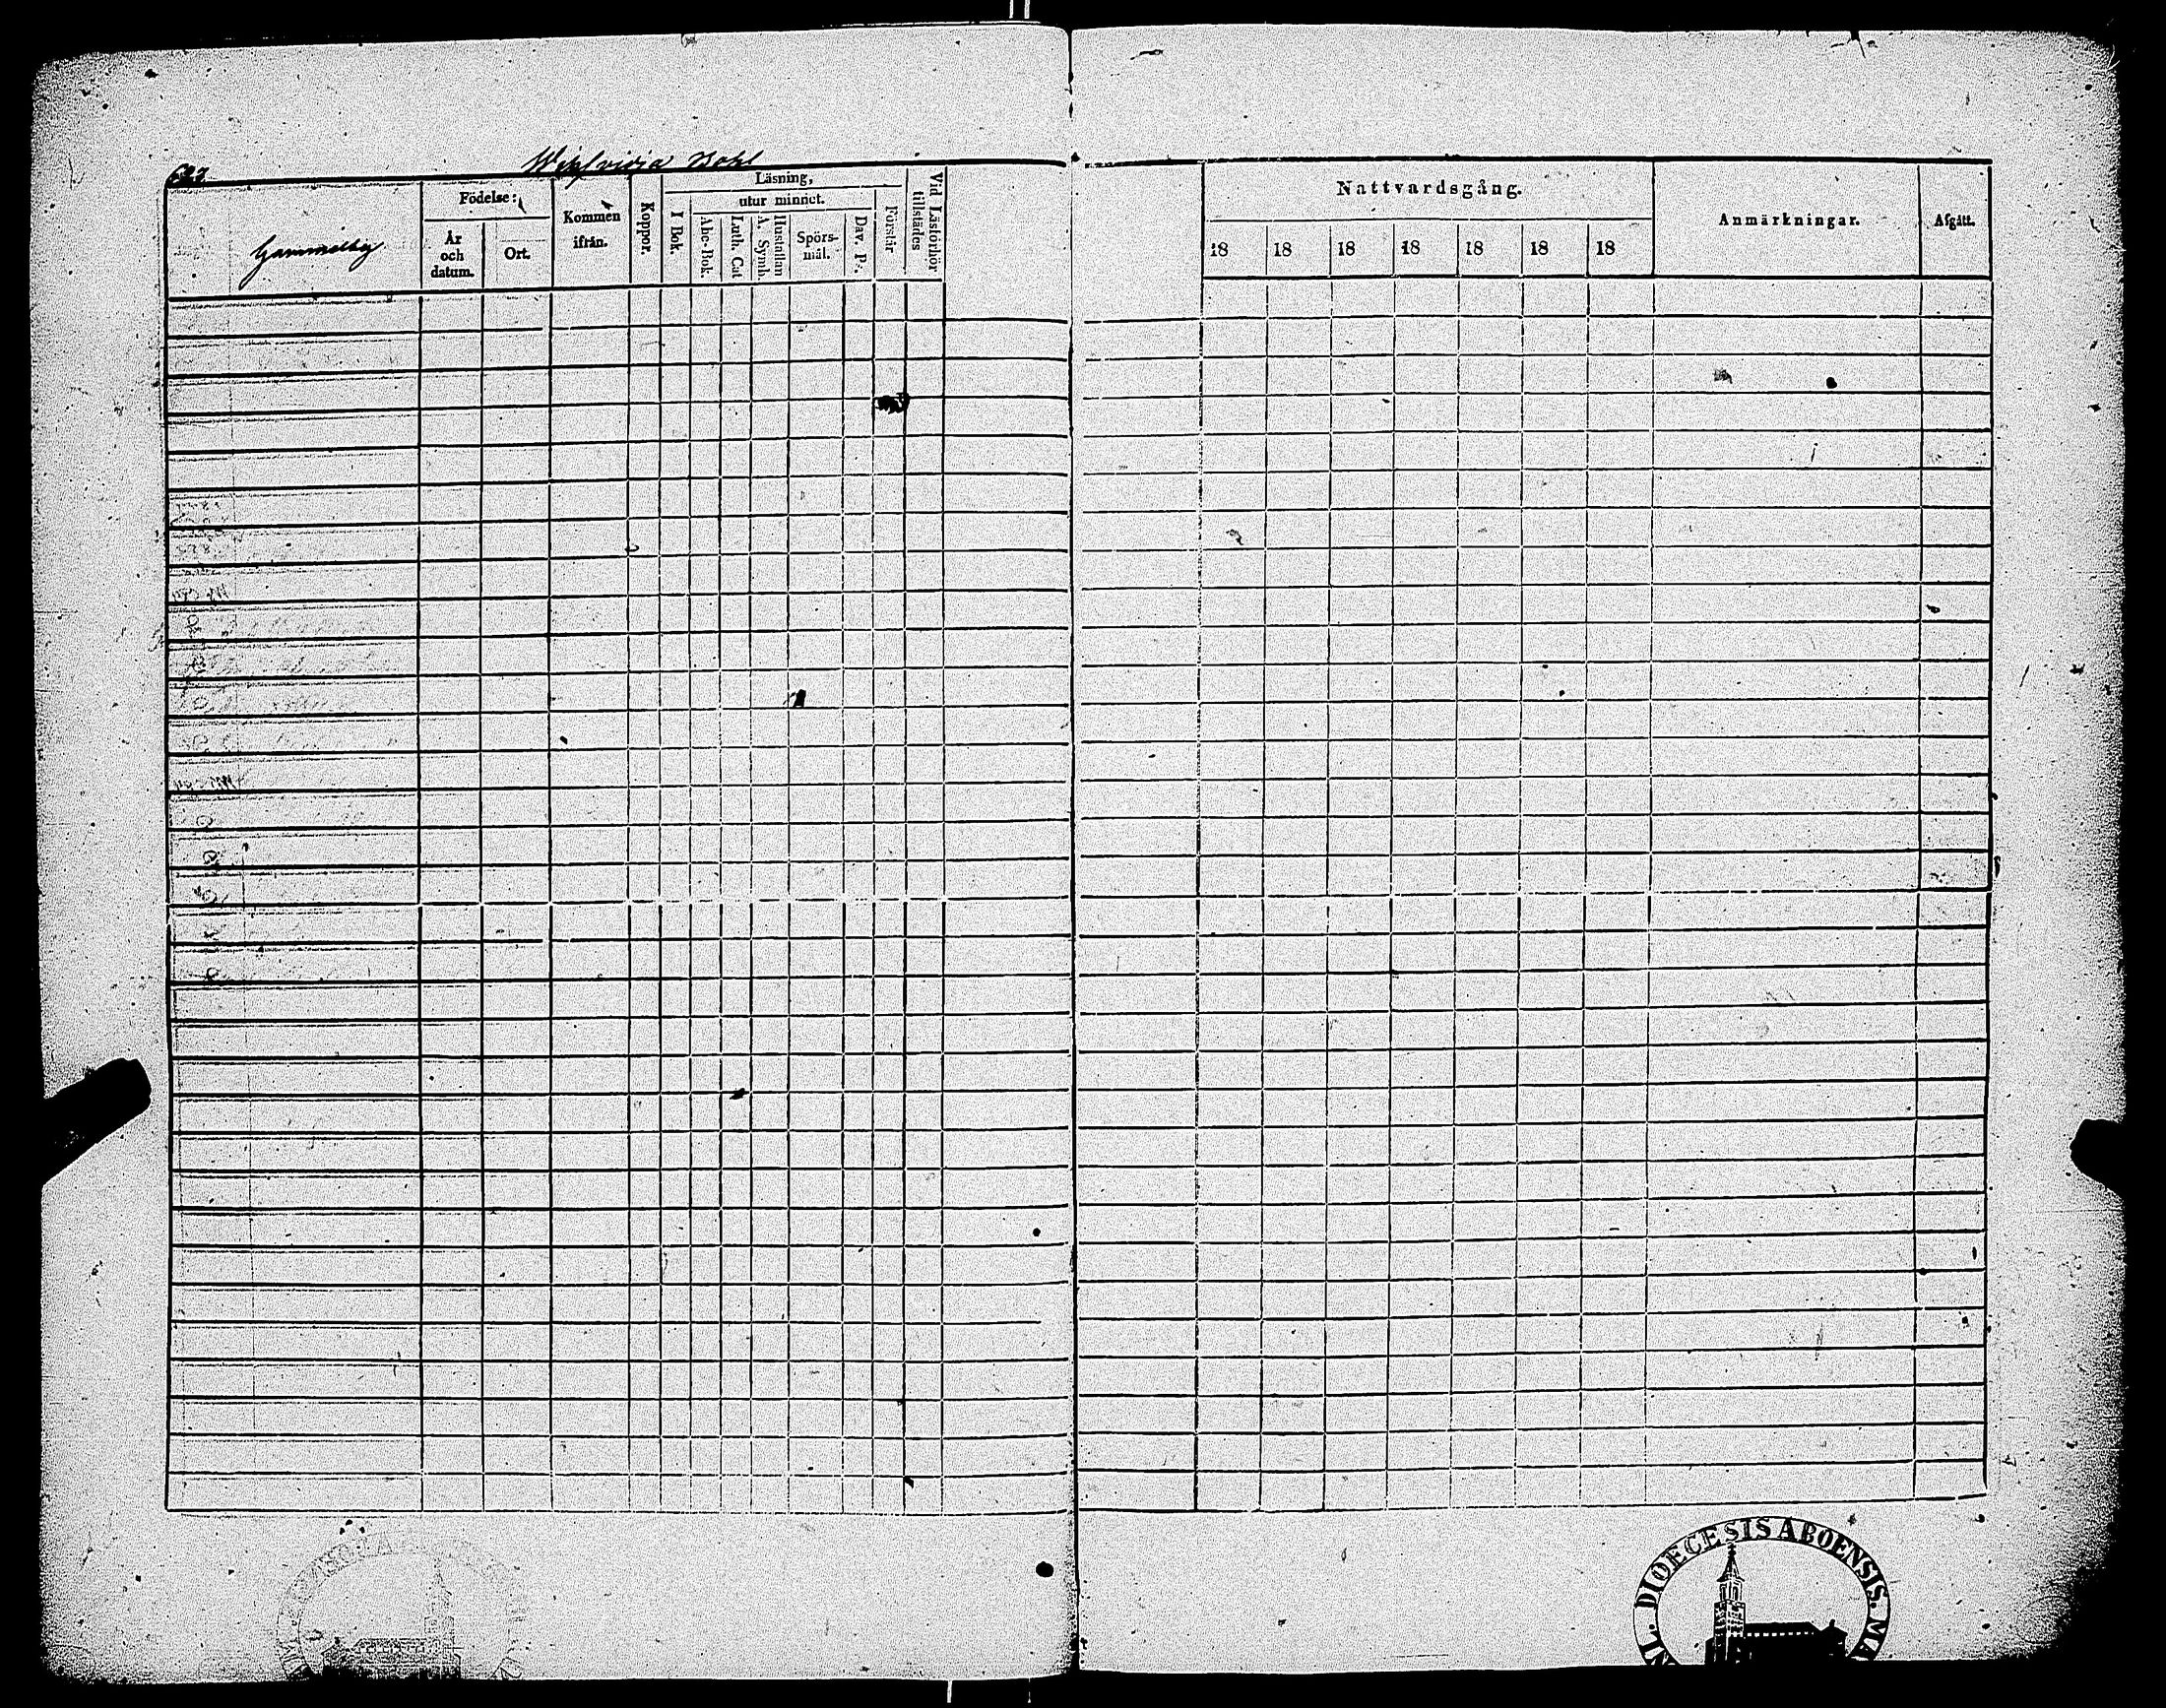 Gammelby
Födelse:
År och datum.
Ort.
Kommen ifrån.
Koppor.
Läsning,
I Bok.
utur minnet.
Abc-Bok.
Luth. Cat
A. Symb.
Hustaflan
Spörs-
mål.
Dav. Ps.
Förstår
Vid Läsförhör
tillstädes
Nattvardsgång.
18 18 18 18 18 18 18
Anmärkningar.
Afgått.
DIOECESIS ABOENSIS.